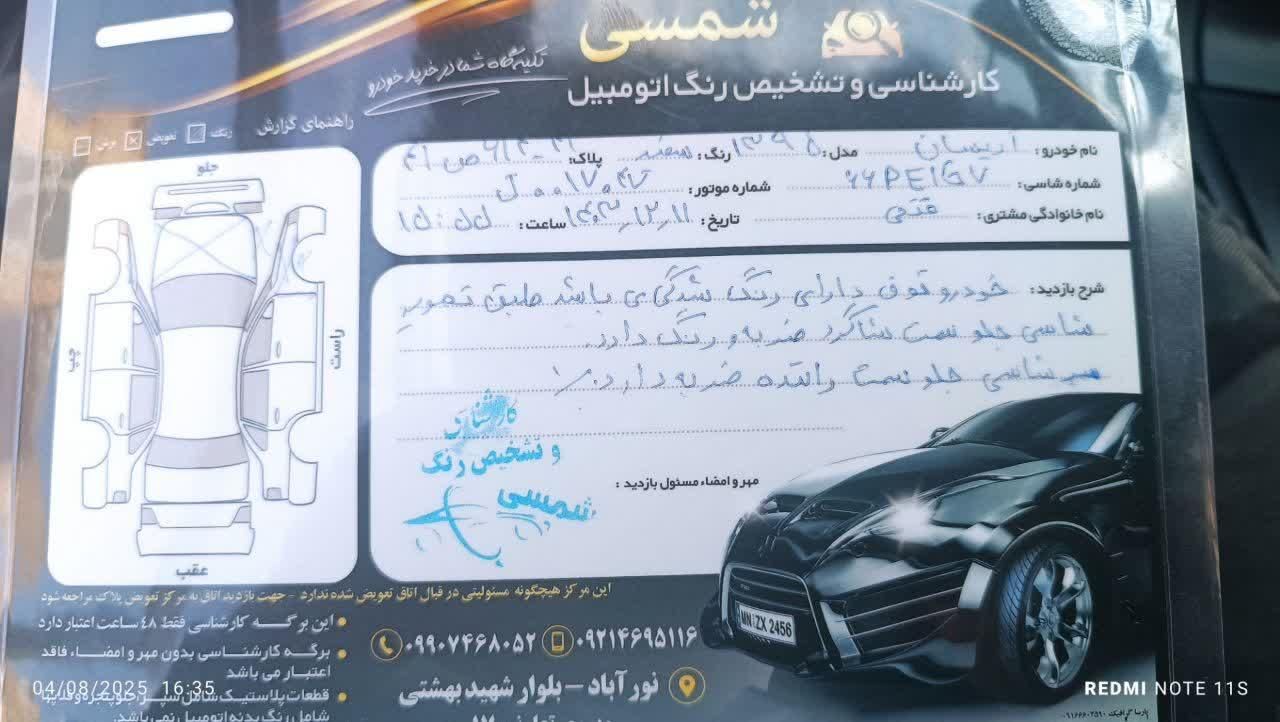 شمسی
تکیه گاه شما در خرید خودرو
کارشناسی و تشخیص رنگ اتومبیل
راهنمای گزارش
رنگ تعویض برش
جلو
راست
چپ
عقب
نام خودرو : آریسان مدل : ۱۳۹۵ رنگ : سفید پلاک :
شماره شاسی : شماره موتور :
نام خانوادگی مشتری : تاریخ : ۱۴۰۳,۱۲,۱۱ ساعت : ۱۵:۵۵
شرح بازدید : خودرو فوق دارای رنگ شدگی می باشد طبق تصویر
شاسی جلو سمت شاگرد ضربه و رنگ دارد.
سر شاسی جلو سمت راننده ضربه دارد.
کارشناسی
و تشخیص رنگ
شمسی
مهر و امضاء مسئول بازدید :
MN:ZX 2456
این مرکز هیچگونه مسئولیتی در قبال اتاق تعویض شده ندارد - جهت بازدید اتاق به مرکز تعویض پلاک مراجعه شود
این برگه کارشناسی فقط ۴۸ ساعت اعتبار دارد
برگه کارشناسی بدون مهر و امضاء فاقد
اعتبار می باشد
قطعات پلاستیک شامل سپر جلو
شامل رنگ بدنه اتومبیل نمی‌باشد.
۰۹۲۱۴۶۹۵۱۱۶ ۰۹۹۰۷۴۶۸۰۵۲
نورآباد - بلوار شهید بهشتی
پارسا گرافیک ۰۹۱۶۶۰۲۵۹۰
04/08/2025 16:35
REDMI NOTE 11S